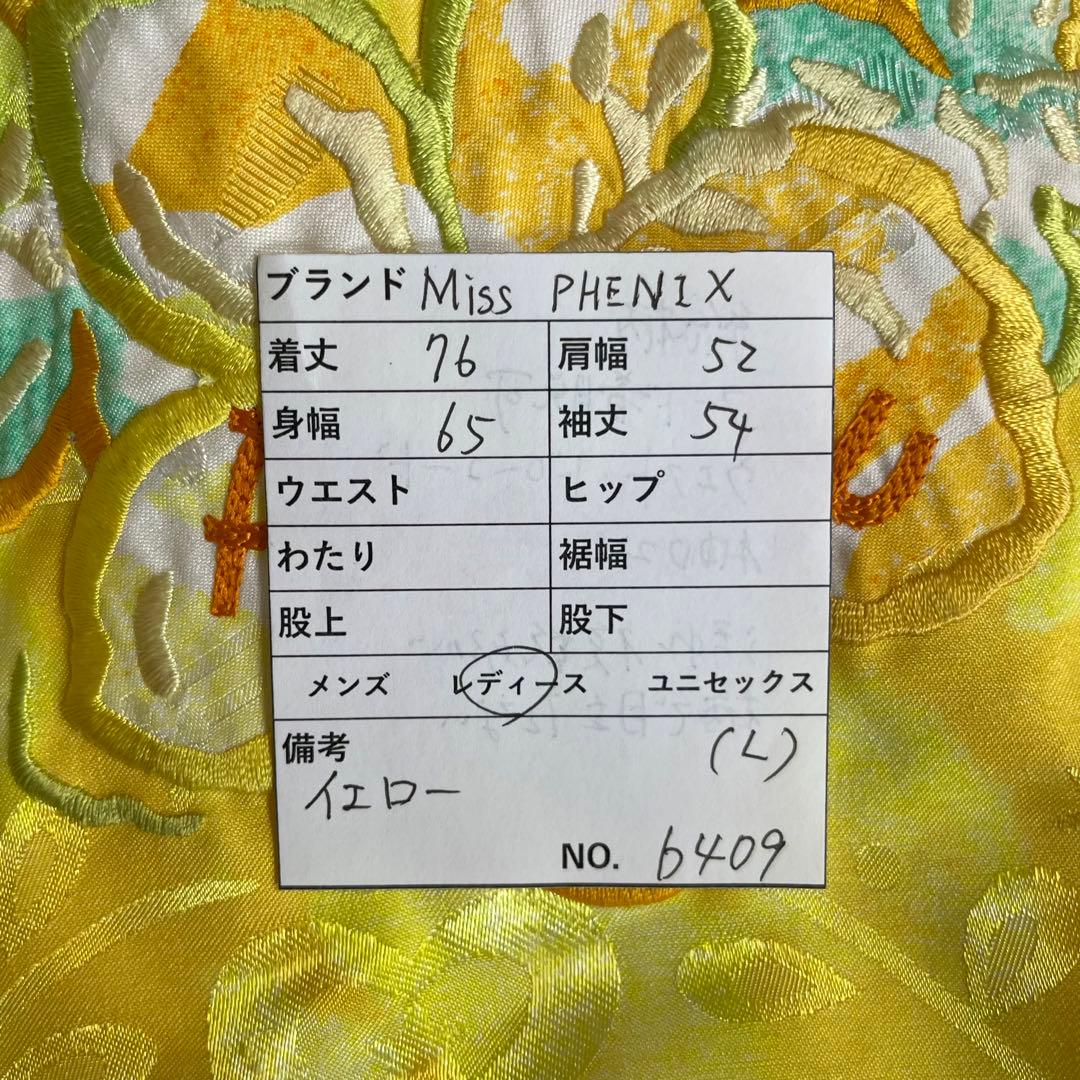 ブランド Miss PHENIX
着丈 76 肩幅 52
身幅 65 袖丈 54
ウエスト ヒップ
わたり 裾幅
股上 股下
メンズ レディース ユニセックス
備考 (L)
イエロー
NO. 6409